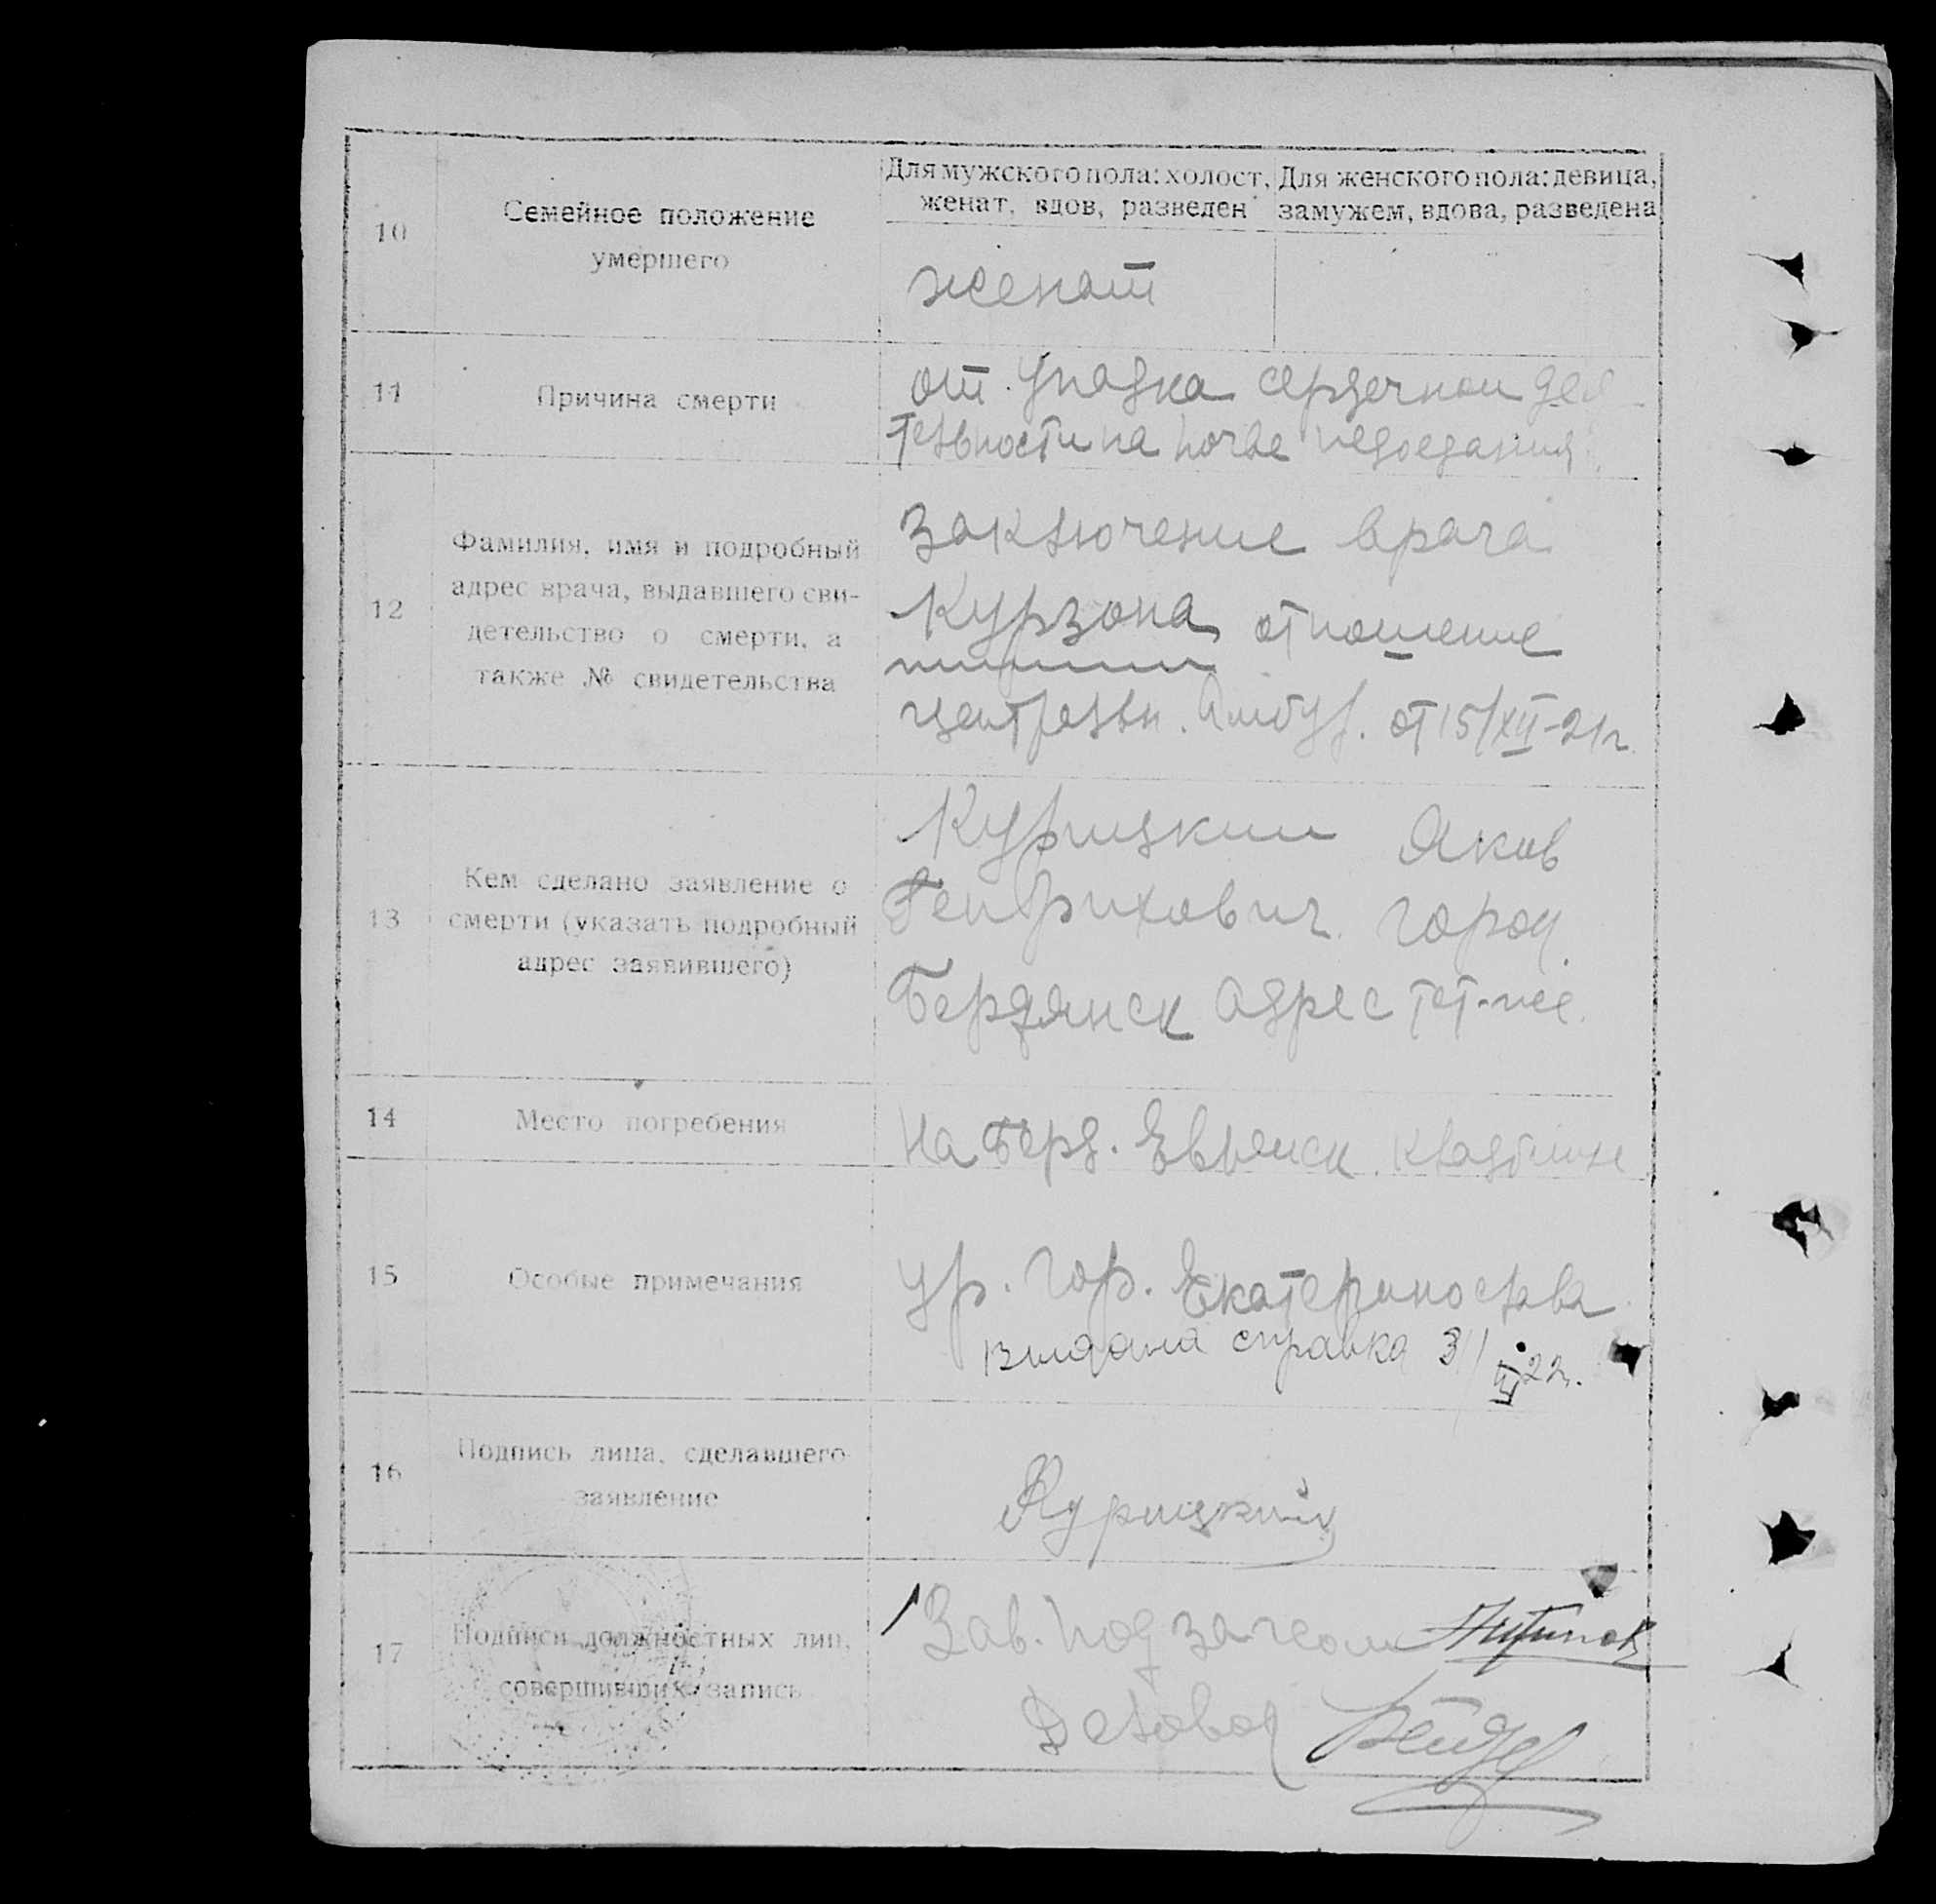 10
Семейное положение
умершего
Для мужского пола: холост,
женат, вдов, разведен
Для женского пола: девица,
замужем, вдова, разведена
женат
11
Причина смерти
от упадка сердечной дея
тельности на почве недоедания
12
Фамилия, имя и подробный
адрес врача, выдавшего сви-
детельство о смерти, а
также № свидетельства
Заключение врача
Курзона отношение
центральн. Амбул. от 15/XII-21г.
13
Кем сделано заявление о
смерти (указать подробный
адрес заявившего)
Курицкий Яков
Генрихович город
Бердянск адрес тот-же
14
Место погребения
На Берд. Еврейск. кладбище
15
Особые примечания
ур. гор. Екатеринослава
выдана справка 3/ 22г.
16
Подпись лица, сделавшего
заявление
Курицкий
17
Подписи должностных лиц,
совершивших запись
Зав. подзагсом
Деловод